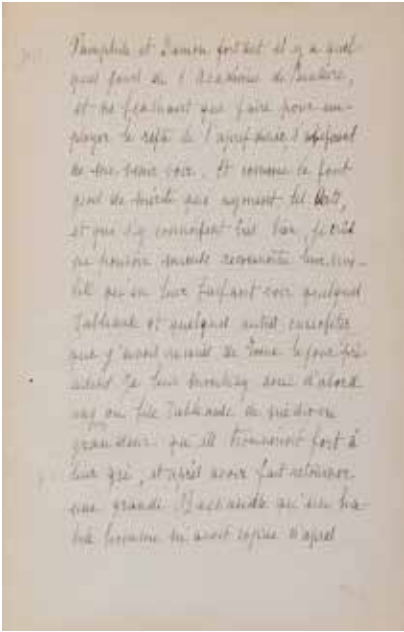 Pamphile et Damon sortant il y a quel-
ques jours de l'Académie de Peinture,
et ne sachant que faire pour em-
ployer le reste de l'apresdinée, s'
de me venir voir. Et comme ce sont
gens de mérite qui ayment les Arts,
et qui s'y connoissent très bien, je crus
ne pouvoir mieux reconnoitre leur
qu'en leur faisant voir quelques
Tableaux et quelques autres curiositez
que j'avois de Rome le jour pré-
cedent. Je leur montray donc d'abord
cinq ou six Tableaux de
grandeur qu'ils trouverent fort à
leur gré, et après avoir fait retourner
une grande Bacchanale qu'un ha-
bile homme m'avoit copiée d'après